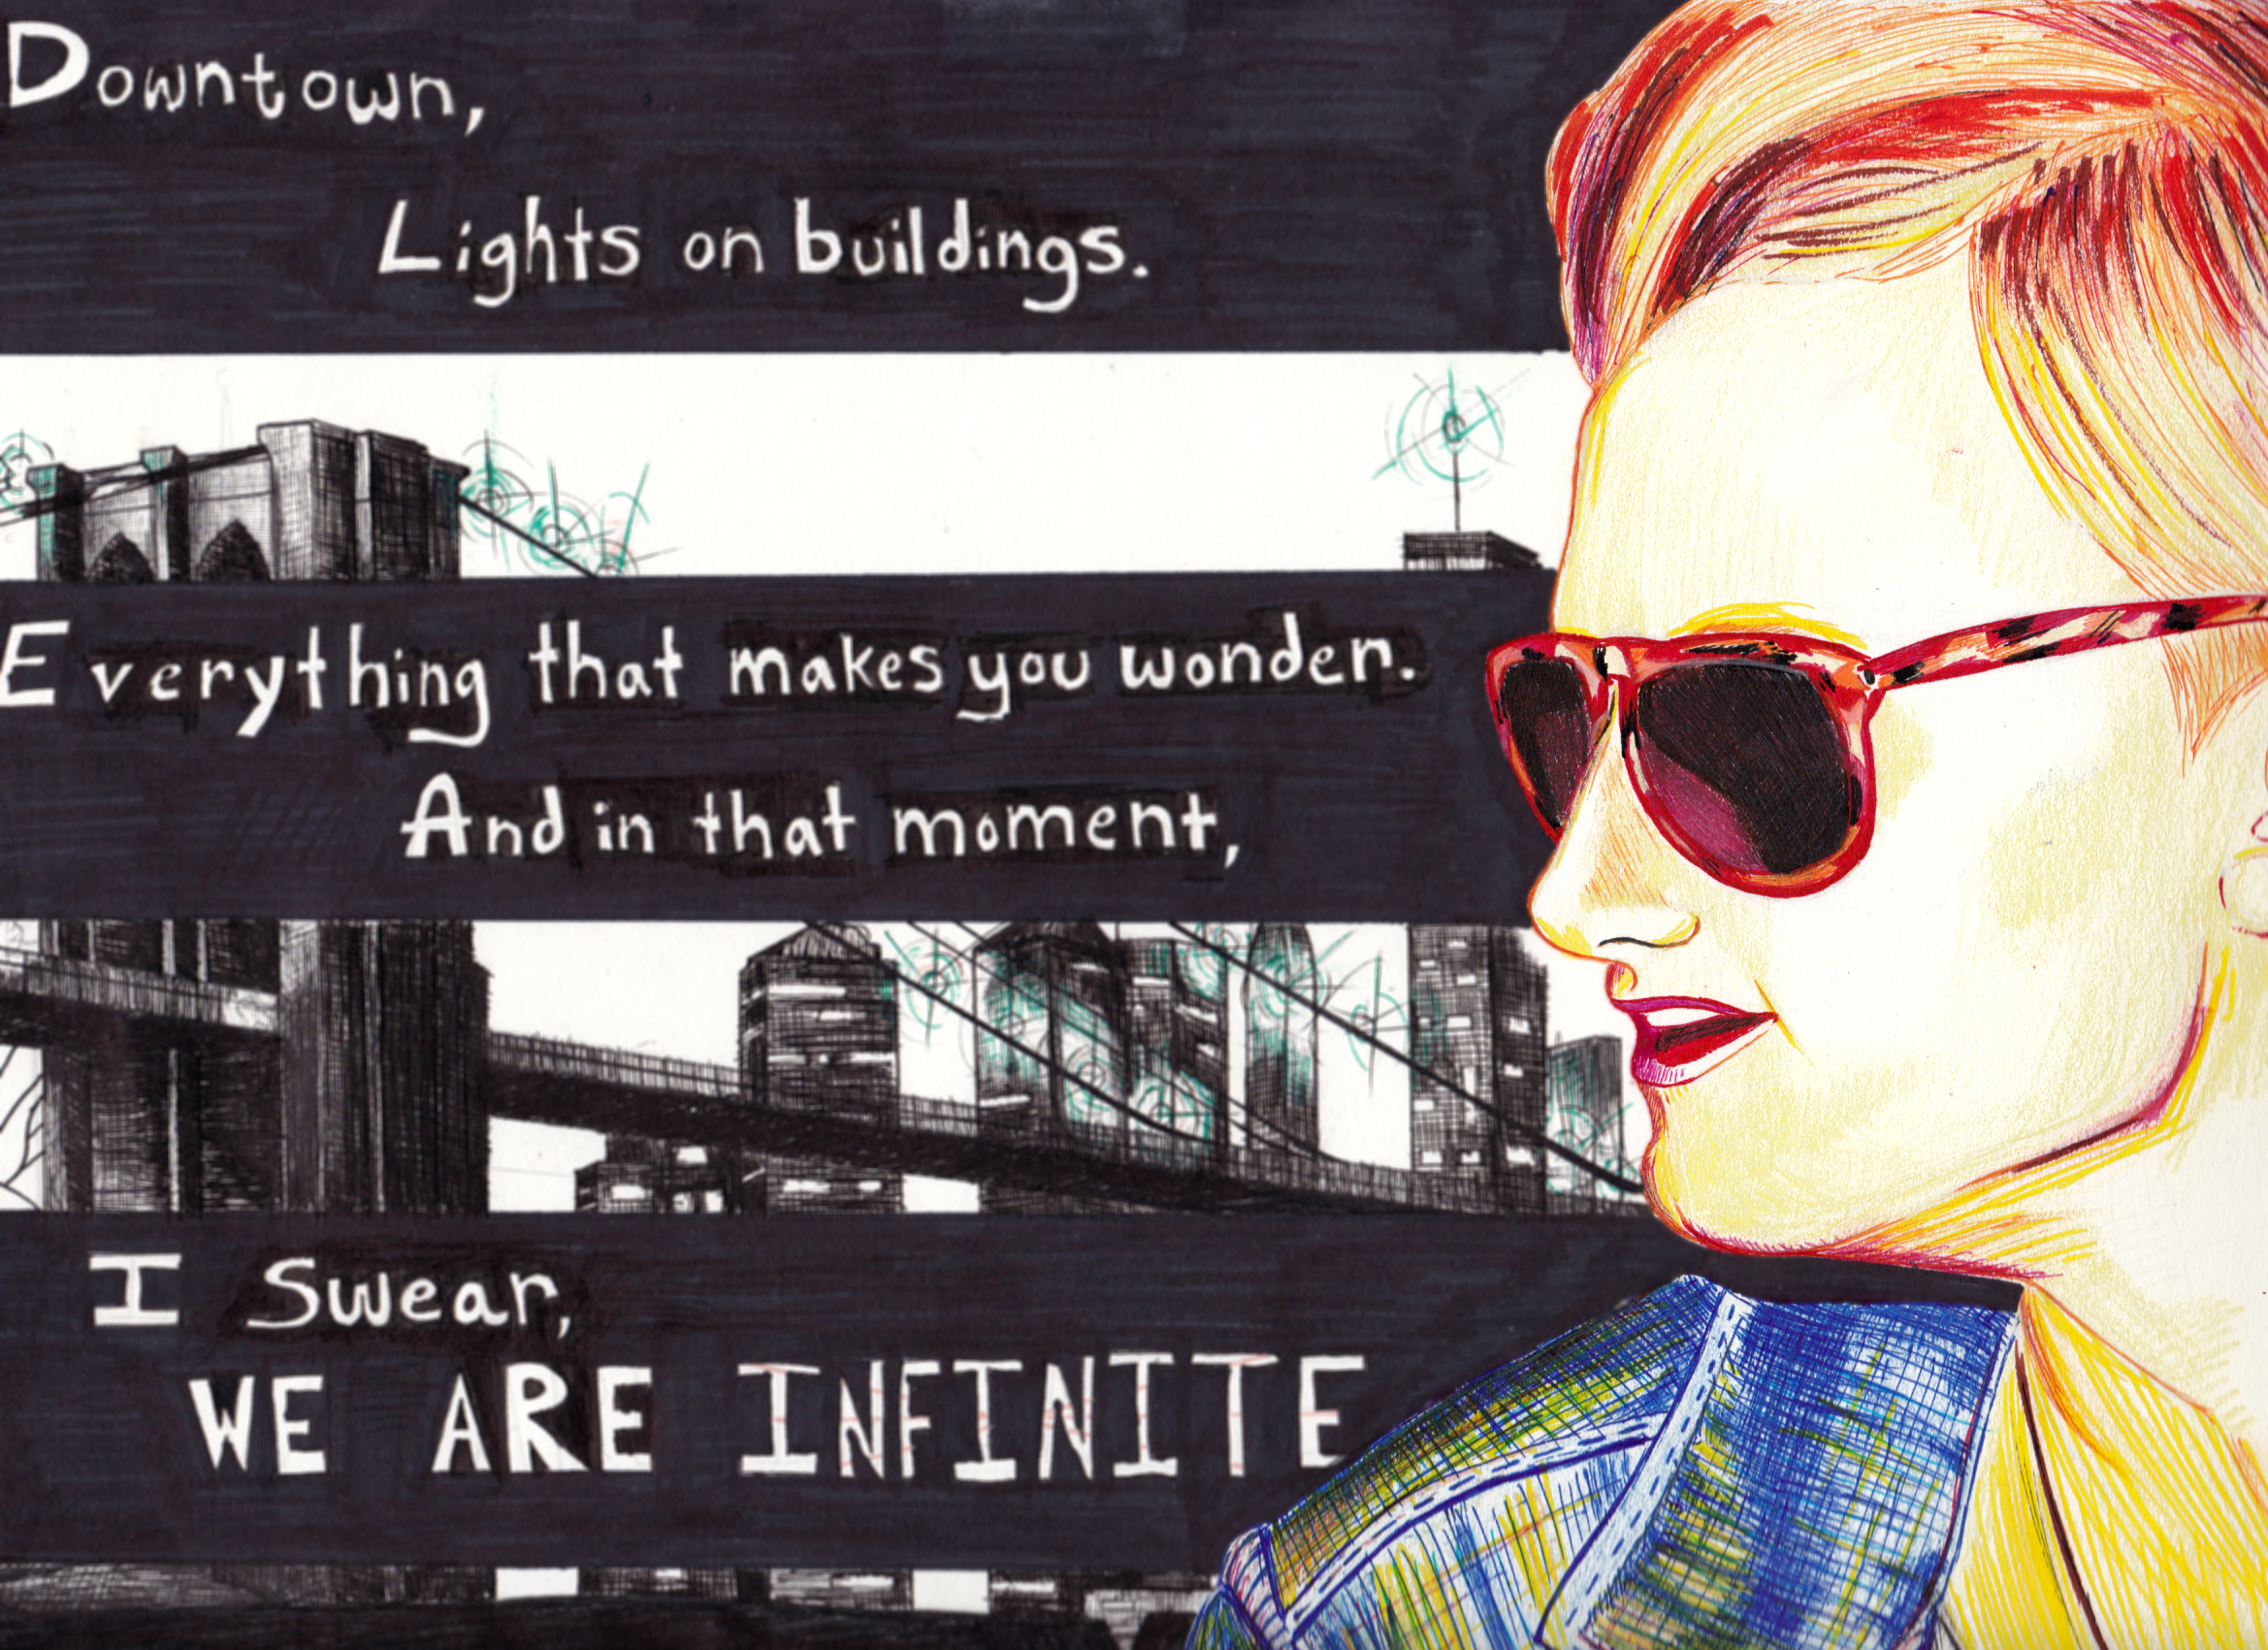 Downtown,
Lights on buildings.
Everything that makes you wonder.
And in that moment,
I Swear,
WE ARE INFINITE